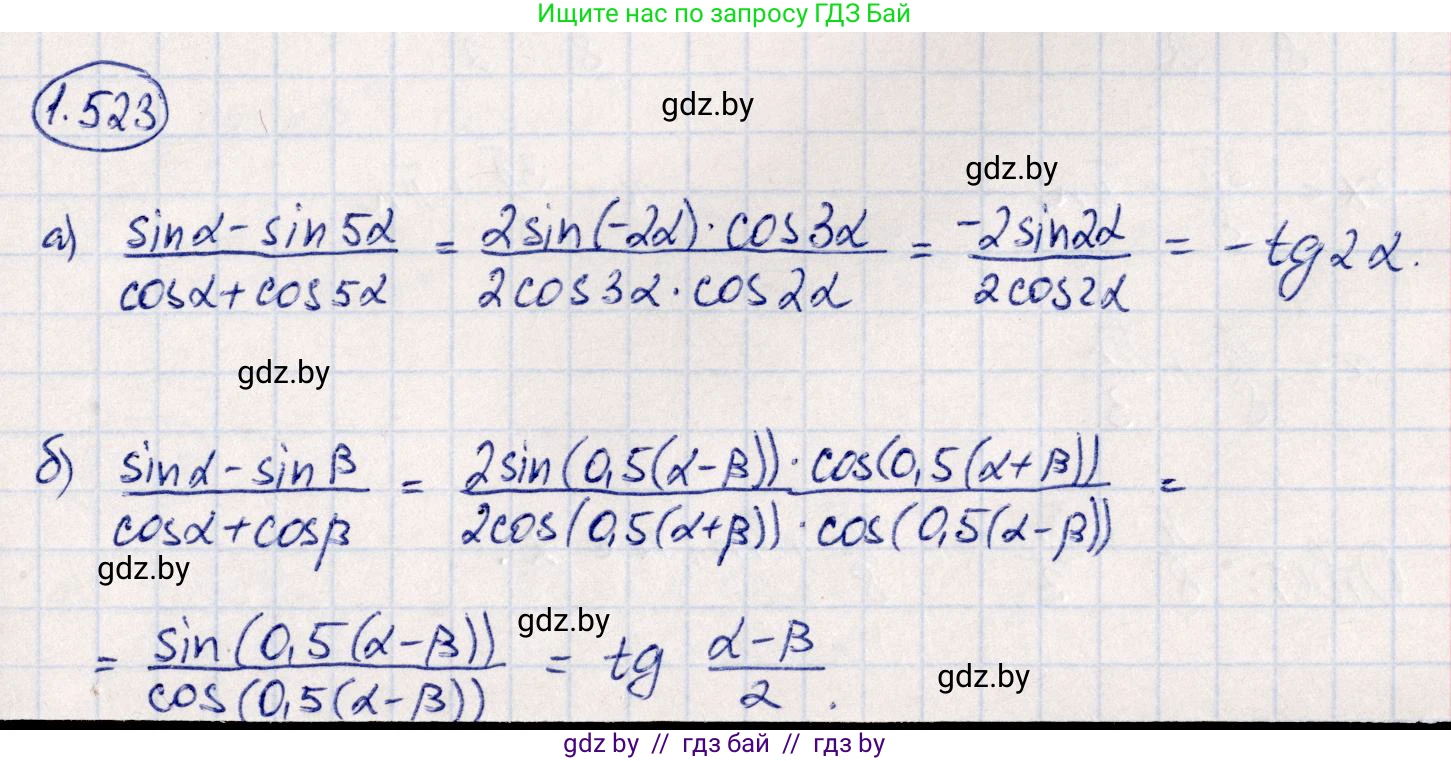 Ищите нас по запросу ГДЗ Бай
1.523
gdz.by
gdz.by
а) (sinα - sin5α)/(cosα + cos5α) = (2sin(-2α) · cos3α)/(2cos3α · cos2α) = (-2sin2α)/(2cos2α) = -tg2α.
gdz.by
б) (sinα - sinβ)/(cosα + cosβ) = (2sin(0,5(α-β)) · cos(0,5(α+β)))/(2cos(0,5(α+β)) · cos(0,5(α-β))) =
gdz.by
gdz.by
= (sin(0,5(α-β)))/(cos(0,5(α-β))) = tg (α-β)/2.
gdz.by
gdz by // гдз бай // гдз by